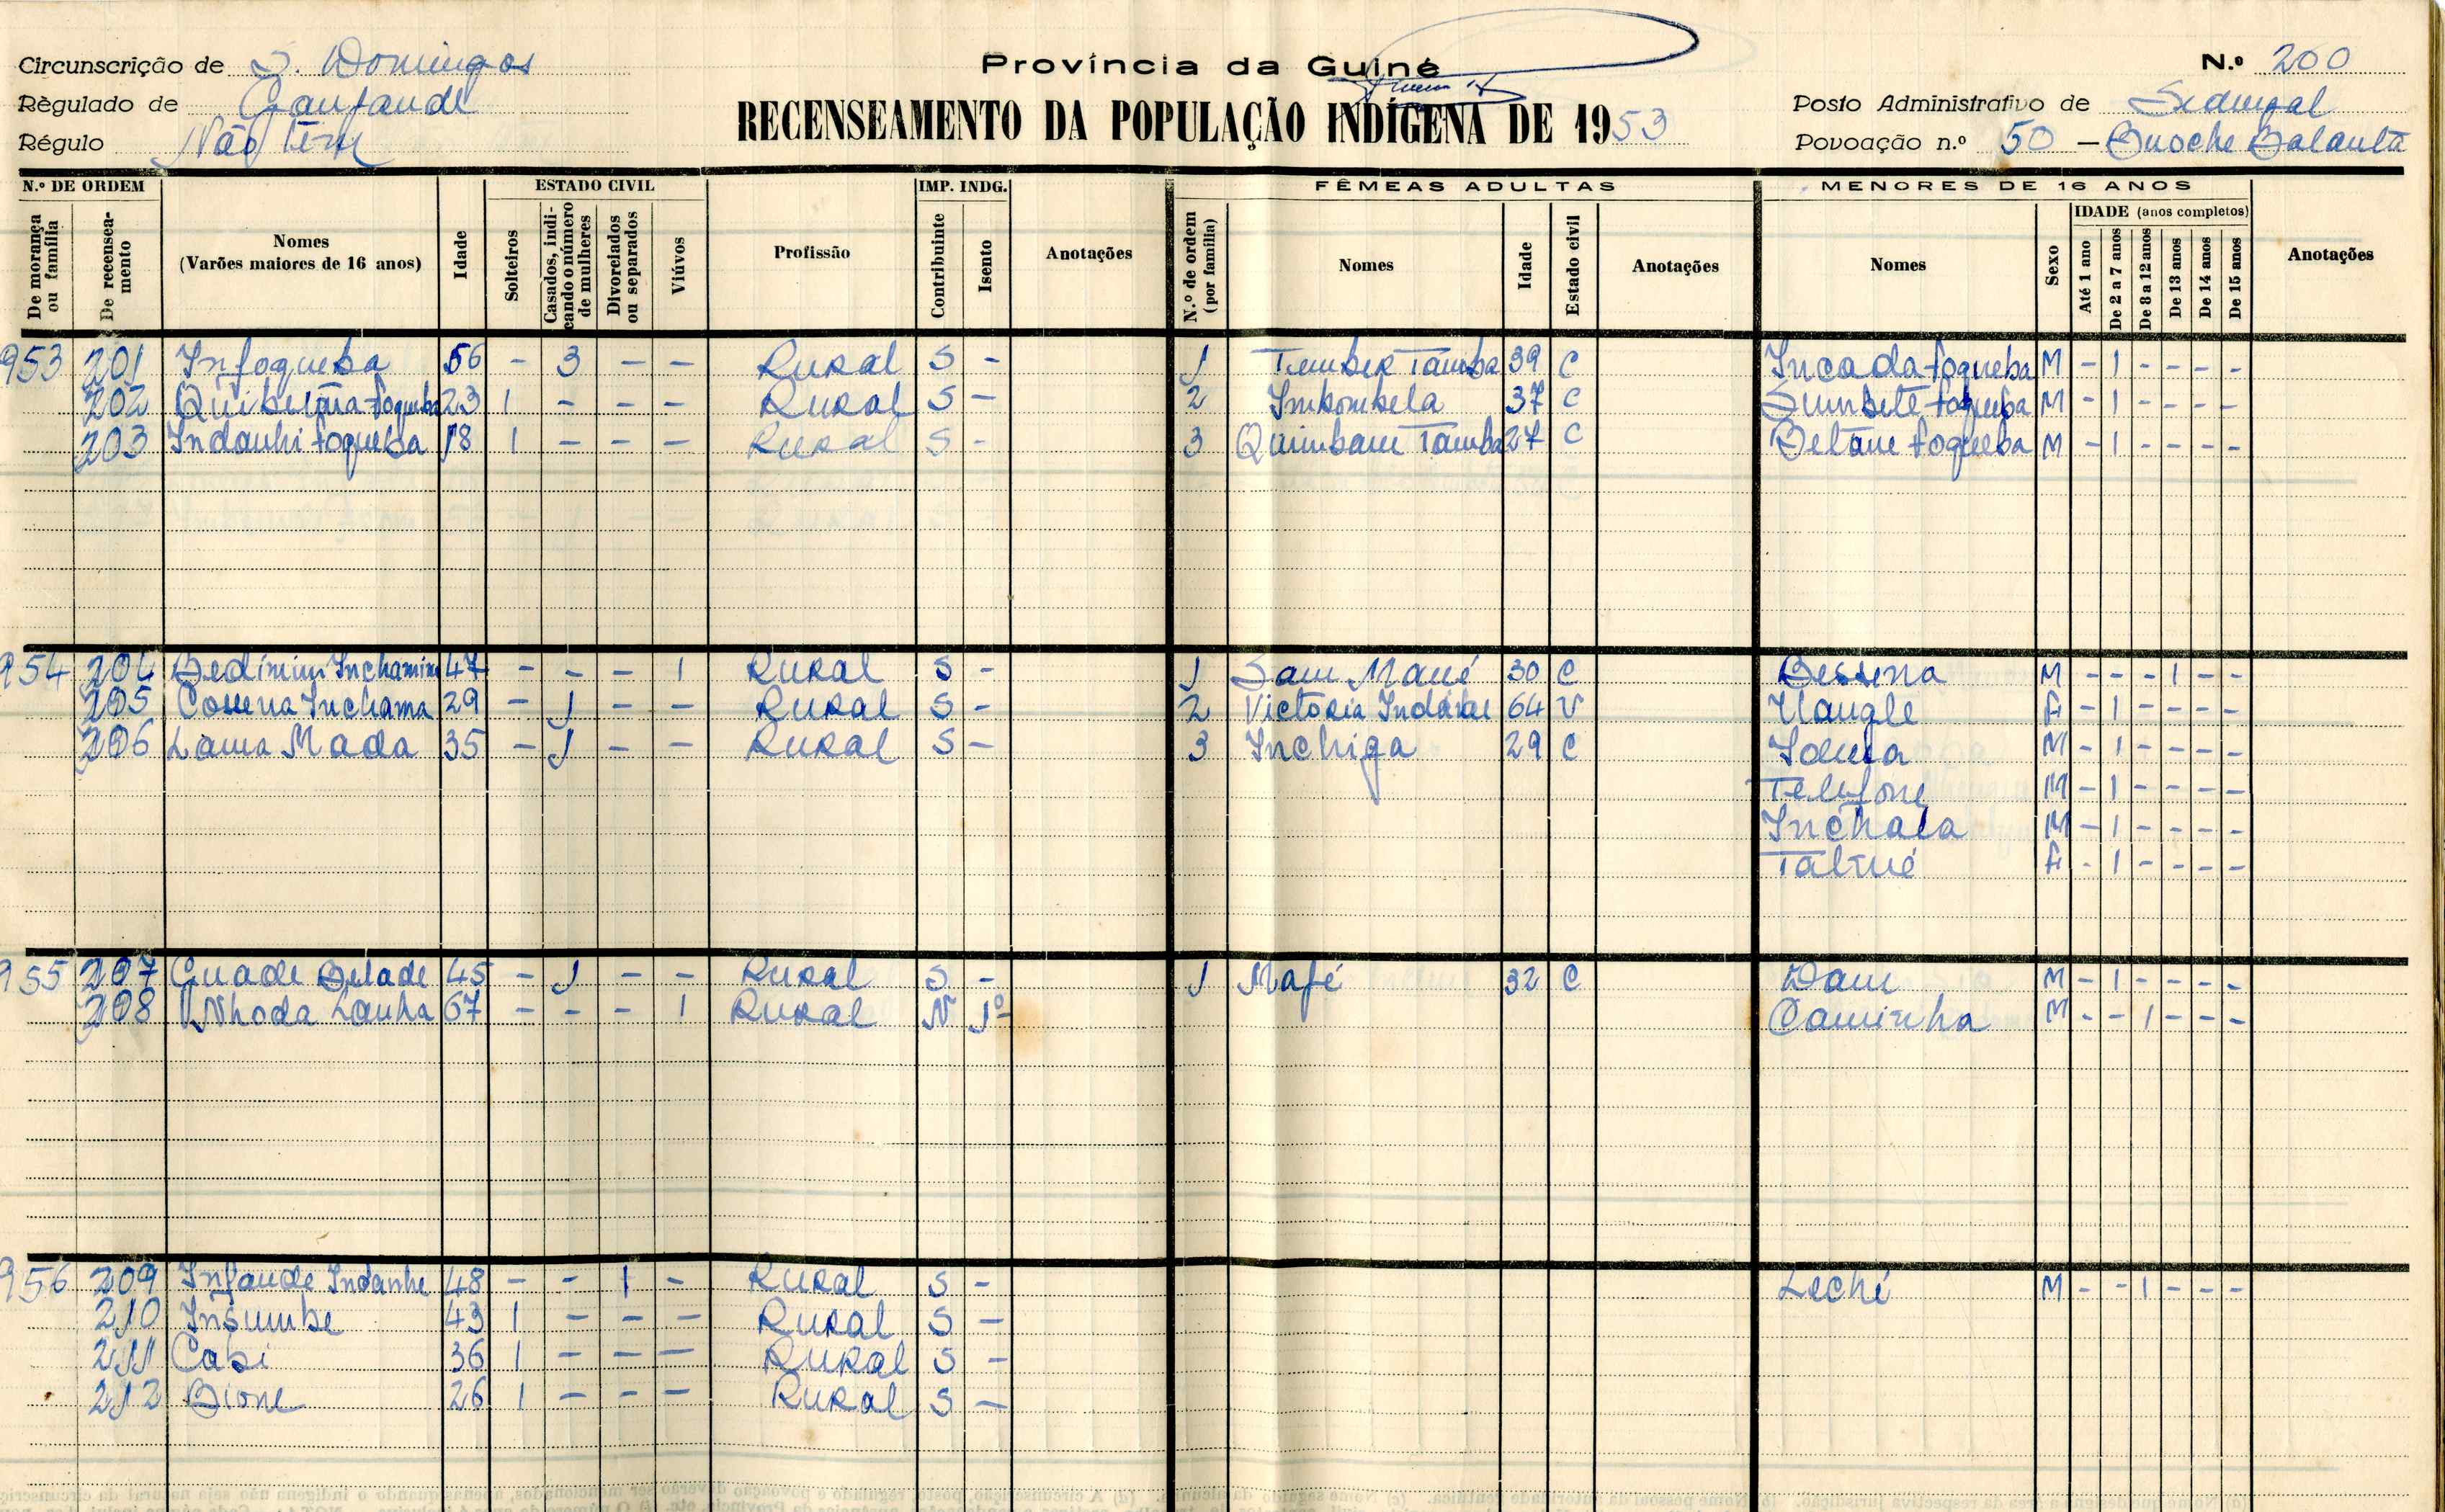 Província da Guiné
RECENSEAMENTO DA POPULAÇÃO INDÍGENA DE 1953
Circunscrição de S. Domingos
Règulado de
Régulo Não têm
N.º 200
Posto Administrativo de Sedengal
Povoação n.º 50 — Buoche Balanta
N.º DE ORDEM
De morança ou família
De recenseamento
Nomes
(Varões maiores de 16 anos)
Idade
ESTADO CIVIL
Solteiros
Casados, indicando o número de mulheres
Divorciados ou separados
Viúvos
Profissão
IMP. INDG.
Contribuinte
Isento
Anotações
FÊMEAS ADULTAS
N.º de ordem (por família)
Nomes
Idade
Estado civil
Anotações
MENORES DE 16 ANOS
Nomes
Sexo
IDADE (anos completos)
Até 1 ano
De 2 a 7 anos
De 8 a 12 anos
De 13 anos
De 14 anos
De 15 anos
Anotações
953 201 Infoqueba 56 - 3 - - Rural S - 1 Tamba 39 C Incada foqueba M - 1 - - - -
202 foqueba 23 1 - - - Rural S - 2 Imbombela 37 C foqueba M - 1 - - - -
203 Indanhi foqueba 18 1 - - - Rural S - 3 Quimbam Tamba 27 C Betane foqueba M - 1 - - - -
954 204 47 - - - 1 Rural S - 1 Sam Mané 30 C Bessena M - - - 1 - -
205 Inchama 29 - 1 - - Rural S - 2 Victória 64 V F - 1 - - - -
206 Lama Mada 35 - 1 - - Rural S - 3 Inchiga 29 C M - 1 - - - -
Telefone M - 1 - - - -
Inchala M - 1 - - - -
F - 1 - - - -
955 207 45 - 1 - - Rural S - 1 Mafé 32 C Dam M - 1 - - - -
208 Nhoda 67 - - - 1 Rural N 1º Caminha M - - 1 - - -
956 209 Infande Indanhe 48 - - 1 - Rural S - Leché M - - 1 - - -
210 Insumbe 43 1 - - - Rural S -
211 Cabi 36 1 - - - Rural S -
212 Bione 26 1 - - - Rural S -